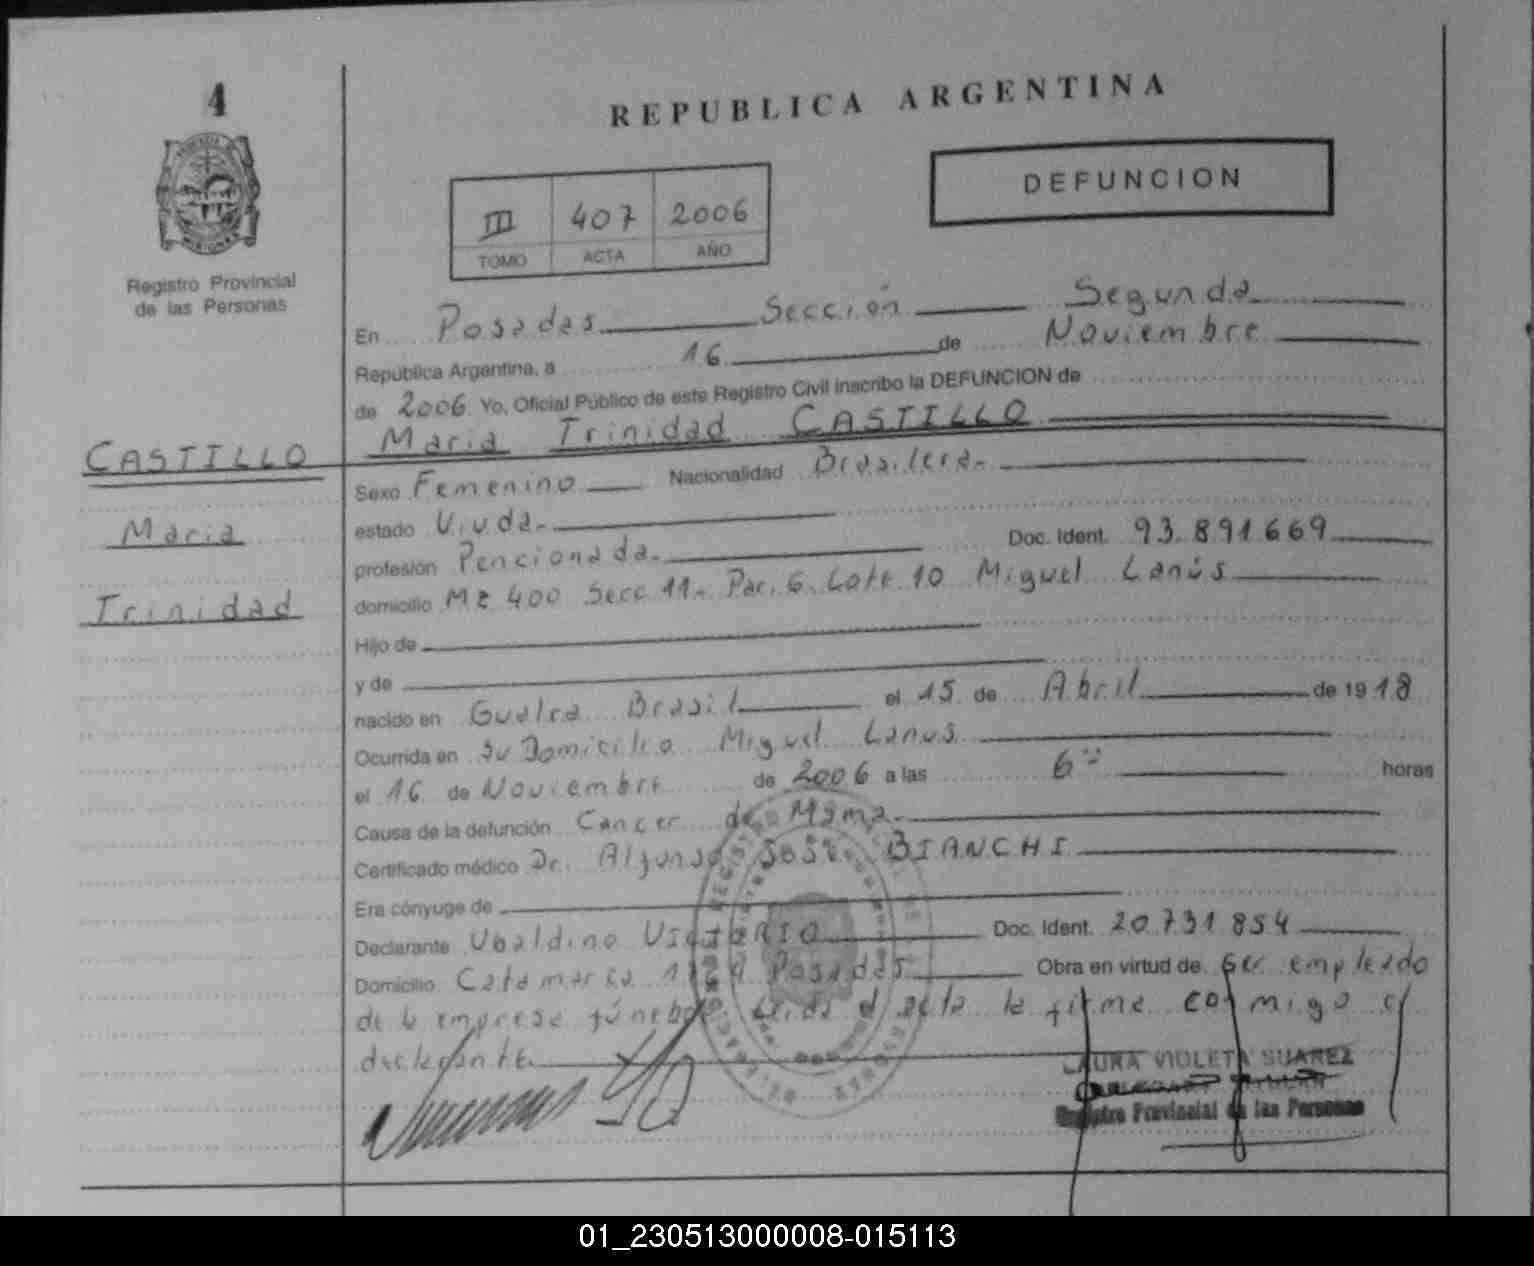 4
REPUBLICA ARGENTINA
DEFUNCION
III 407 2006
TOMO ACTA AÑO
Registro Provincial
de las Personas
En Posadas Sección Segunda
República Argentina, a 16 de Noviembre
de 2006 Yo, Oficial Público de este Registro Civil inscribo la DEFUNCION de
Maria Trinidad CASTILLO
CASTILLO
Maria
Trinidad
Sexo Femenino Nacionalidad Brasilera.
estado Viuda.
profesión Pencionada. Doc. Ident. 93.891669
domicilio Mz 400 Secc 11. Par. 6. Lote 10 Miguel Lanús
Hijo de
y de
nacido en Brasil el 15 de Abril de 1918
Ocurrida en Su Domicilio Miguel Lanus
el 16 de Noviembre de 2006 a las 6 horas
Causa de la defunción Cancer de Mama.
Certificado médico Dr. Alfonso José BIANCHI
Era cónyuge de
Declarante Ubaldino Doc. Ident. 20.731854
Domicilio Catamarca Posadas Obra en virtud de ser empleado
de la empresa fúnebre Leida el acta la firma conmigo el
declarante.
LAURA VIOLETA SUAREZ
Registro Provincial de las Personas
01_230513000008-015113